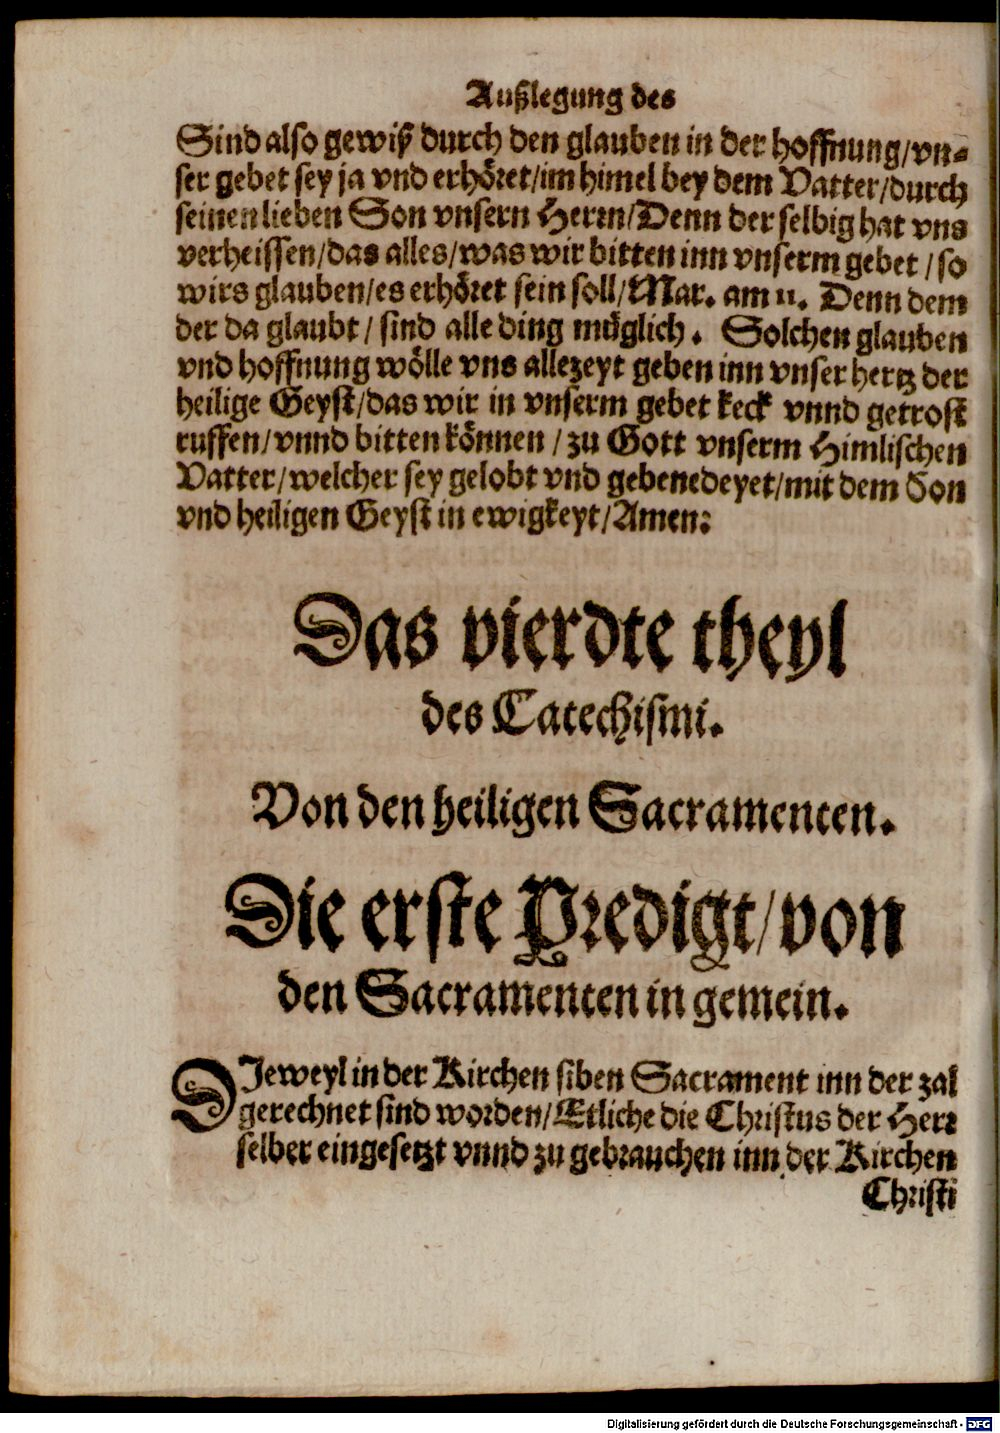 Außlegung des
Sind also gewiß durch den glauben in der hoffnung/vn-
ser gebet sey ja vnd erhöret/im himel bey dem Vatter/durch
seinen lieben Son vnsern Herrn/Denn der selbig hat vns
verheissen/das alles/was wir bitten inn vnserm gebet/so
wirs glauben/es erhöret sein soll/Mar. am 11. Denn dem
der da glaubt/sind alle ding müglich. Solchen glauben
vnd hoffnung wölle vns allezeyt geben inn vnser hertz der
heilige Geyst/das wir in vnserm gebet keck vnnd getrost
ruffen/vnnd bitten können/zu Gott vnserm Himlischen
Vatter/welcher sey gelobt vnd gebenedeyet/mit dem Son
vnd heiligen Geyst in ewigkeyt/Amen:
Das vierdte theyl
des Catechismi.
Von den heiligen Sacramenten.
Die erste Predigt/von
den Sacramenten in gemein.
DJeweyl in der Kirchen siben Sacrament inn der zal
gerechnet sind worden/Etliche die Christus der Herr
selber eingesetzt vnnd zu gebrauchen inn der Kirchen
Christi
Digitalisierung gefördert durch die Deutsche Forschungsgemeinschaft - DFG